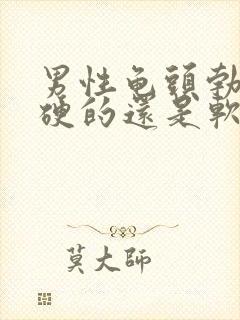 男性龟頭勃
硬的還是軟
莫大師